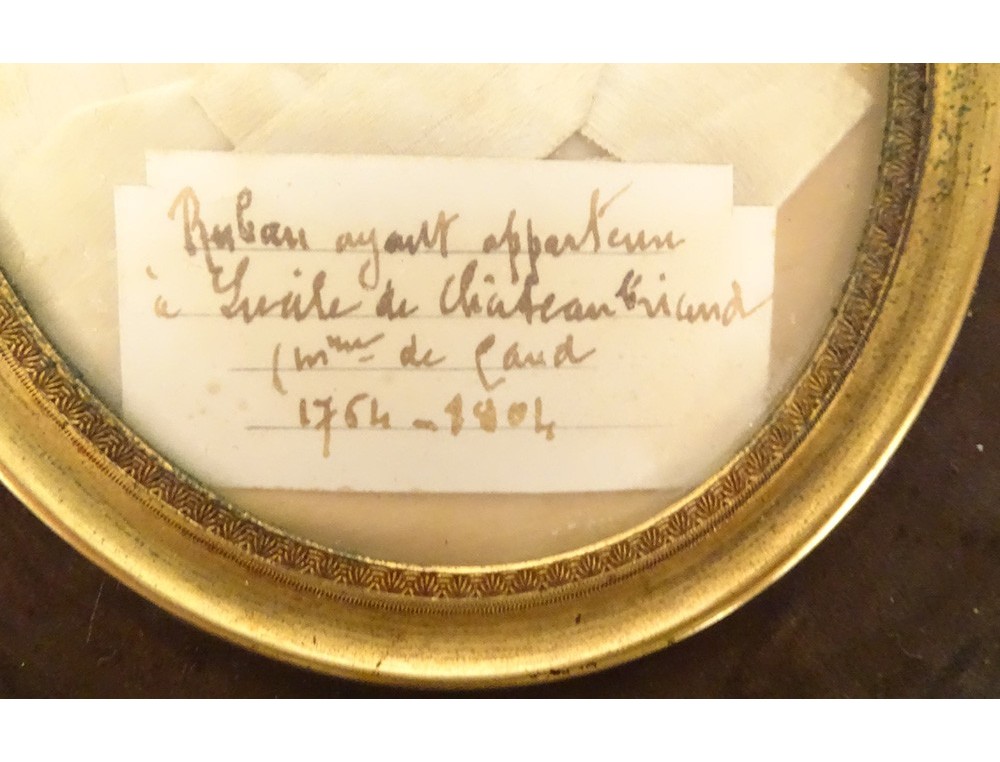 Ruban ayant appartenu
à Lucile de Châteaubriand
(Mme de Caud
1764 - 1804